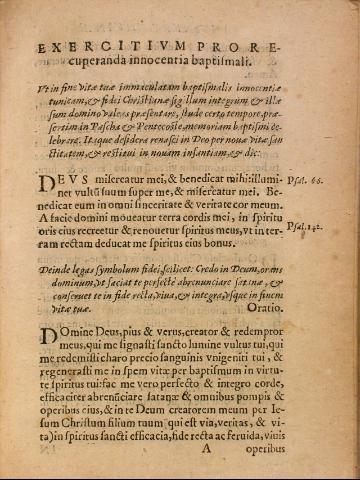 EXERCITIVM PRO RE-
cuperanda innocentia baptismali.
Vt in fine vitæ tuæ immaculatam baptismalis innocentiæ
tunicam, & fidei Christianæ sigillum integrum & illæ
sum domino valeas præsentare, stude certo tempore, præ-
sertim in Pascha & Pentecoste, memoriam baptismi ce-
lebrare. Itaque desidera renasci in Deo per nouæ vitæ san
ctitatem, & restitui in nouam infantiam, & dic:
DEVS misereatur mei, & benedicat mihi: illumi- Psal. 66.
net vultū suum super me, & misereatur mei. Be-
nedicat eum in omni sinceritate & veritate cor meum.
A facie domini moueatur terra cordis mei, in spiritu
oris eius recreetur & renouetur spiritus meus, vt in ter- Psal. 142.
ram rectam deducat me spiritus eius bonus.
Deinde legas symbolum fidei, scilicet: Credo in Deum, orans
dominum, vt faciat te perfectè abrenunciare satanæ, &
conseruet te in fide recta, viua, & integra, vsque in finem
vitæ tuæ. Oratio.
DOmine Deus, pius & verus, creator & redemptor
meus, qui me signasti sancto lumine vultus tui, qui
me redemisti charo precio sanguinis vnigeniti tui, &
regenerasti me in spem vitæ per baptismum in virtu-
te spiritus tui: fac me vero perfecto & integro corde,
efficaciter abrenūciare satanæ & omnibus pompis &
operibus eius, & in te Deum creatorem meum per Ie-
sum Christum filium tuum (qui est via, veritas, & vi-
ta) in spiritus sancti efficacia, fide recta ac feruida, viuis
A operibus